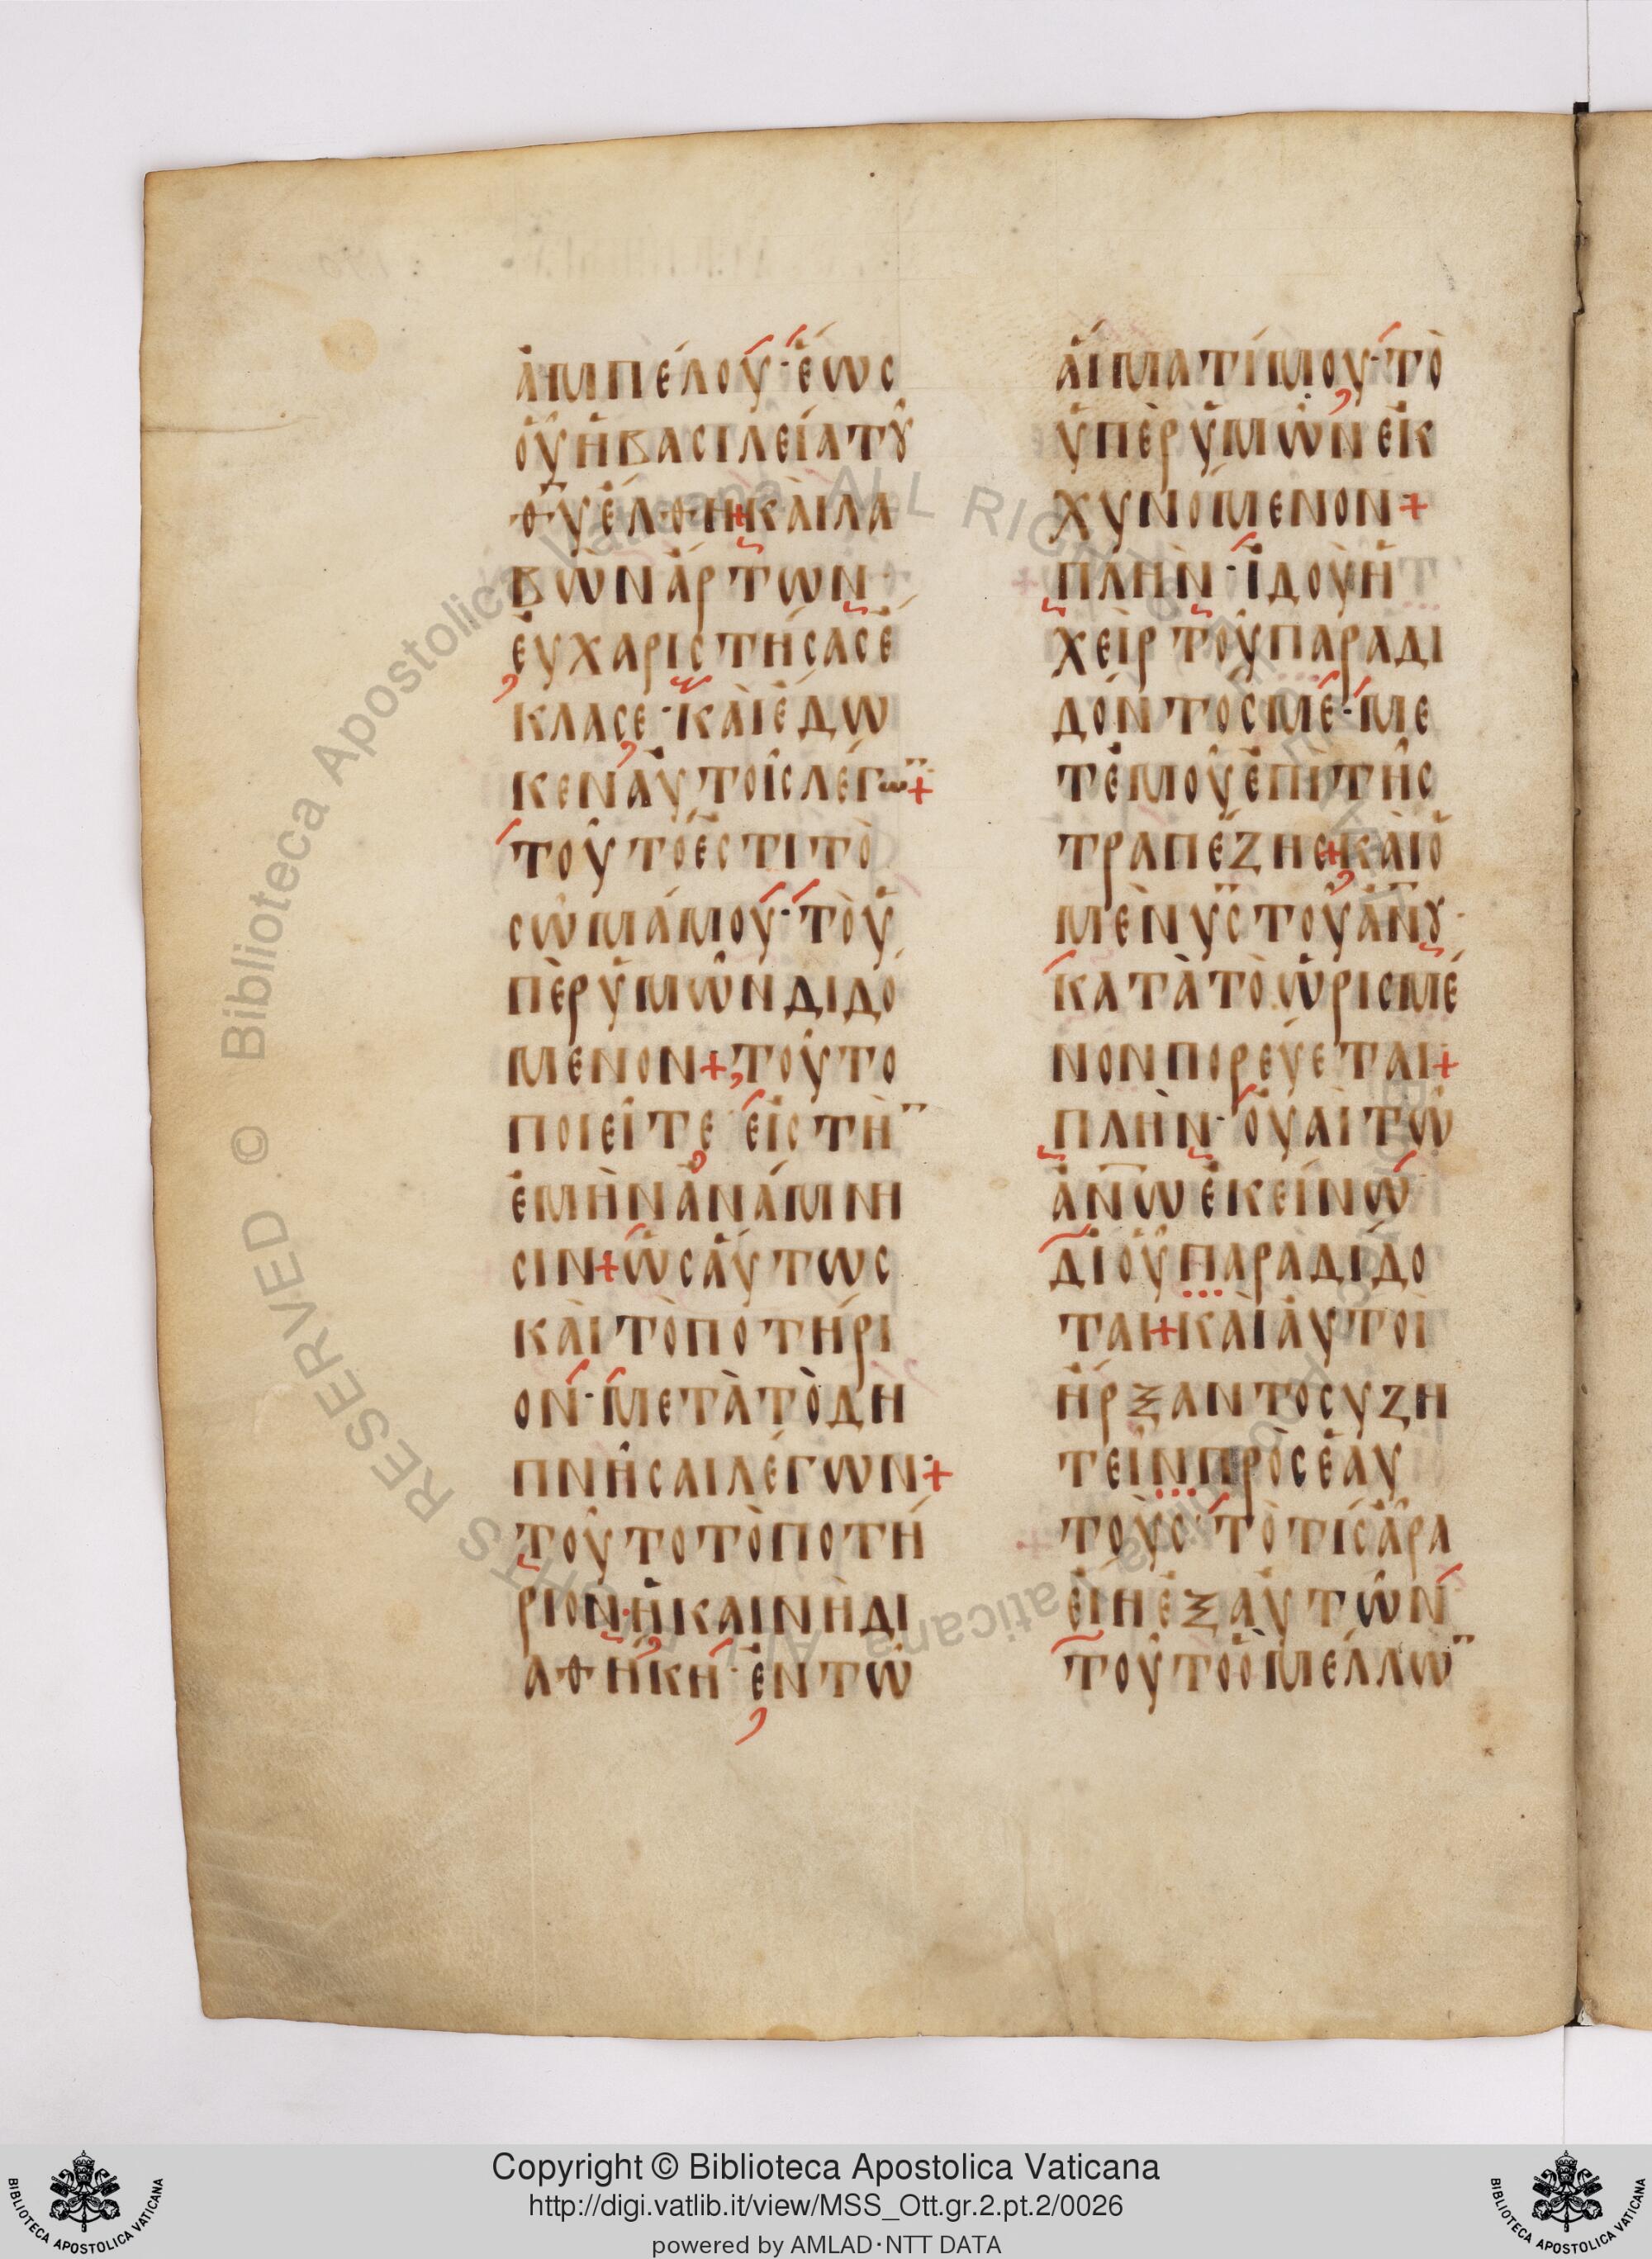 ἀμπέλου· ἕως
οὗ ἡ βασιλεία τȣ
θ̅υ̅ ἔλθη + κὰι λα
βὼν ἄρτων
ἐυχαριστήσας έ
κλασε· κὰι ἔδω
κεν ἀυτοῖς λέγω̅ +
τοῦτό ἐστι τὸ
σῶμά μου· τὸ ὑ
πὲρ ὑμῶν διδό
μενον + τοῦτο
ποιεῖτε εἰς τὴ̅
ἐμὴν ἀνάμνη
σιν + ὡσάυτως
κὰι τὸ ποτήρι
ον· μετὰ τὸ δη
πνῆσαι λέγων +
τοῦτο τὸ ποτή
ριον· ἡ καινὴ δι
αθήκη· ἐν τῶ
ἁίματί μου· τὸ
ὑπὲρ ὑμῶν ἐκ
χυνόμενον +
πλὴν· ἰδοὺ ἡ
χεὶρ τοῦ παραδι
δόντος μέ· με
τ' ἐμοῦ ἐπὶ τῆς
τραπέζης + κὰι ὁ
μὲν υ̅ς̅ τοῦ α̅ν̅ȣ̅·
κατὰ τὸ ὡρισμέ
νον πορεύεται +
πλὴν· οὐαὶ τῶ
α̅ν̅ω̅ ἐκείνω
δι οὗ παραδίδο
ται + κὰι ἀυτοὶ
ἤρξαντο συζη
τεῖν πρὸς ἑαυ
τοὺς· τὸ τίς ἄρα
εἴη ἐξ ἀυτῶν
τοῦτο ὁ μέλλω̅
Copyright © Biblioteca Apostolica Vaticana
http://digi.vatlib.it/view/MSS_Ott.gr.2.pt.2/0026
powered by AMLAD·NTT DATA
BIBLIOTECA APOSTOLICA VATICANA
BIBLIOTECA APOSTOLICA VATICANA